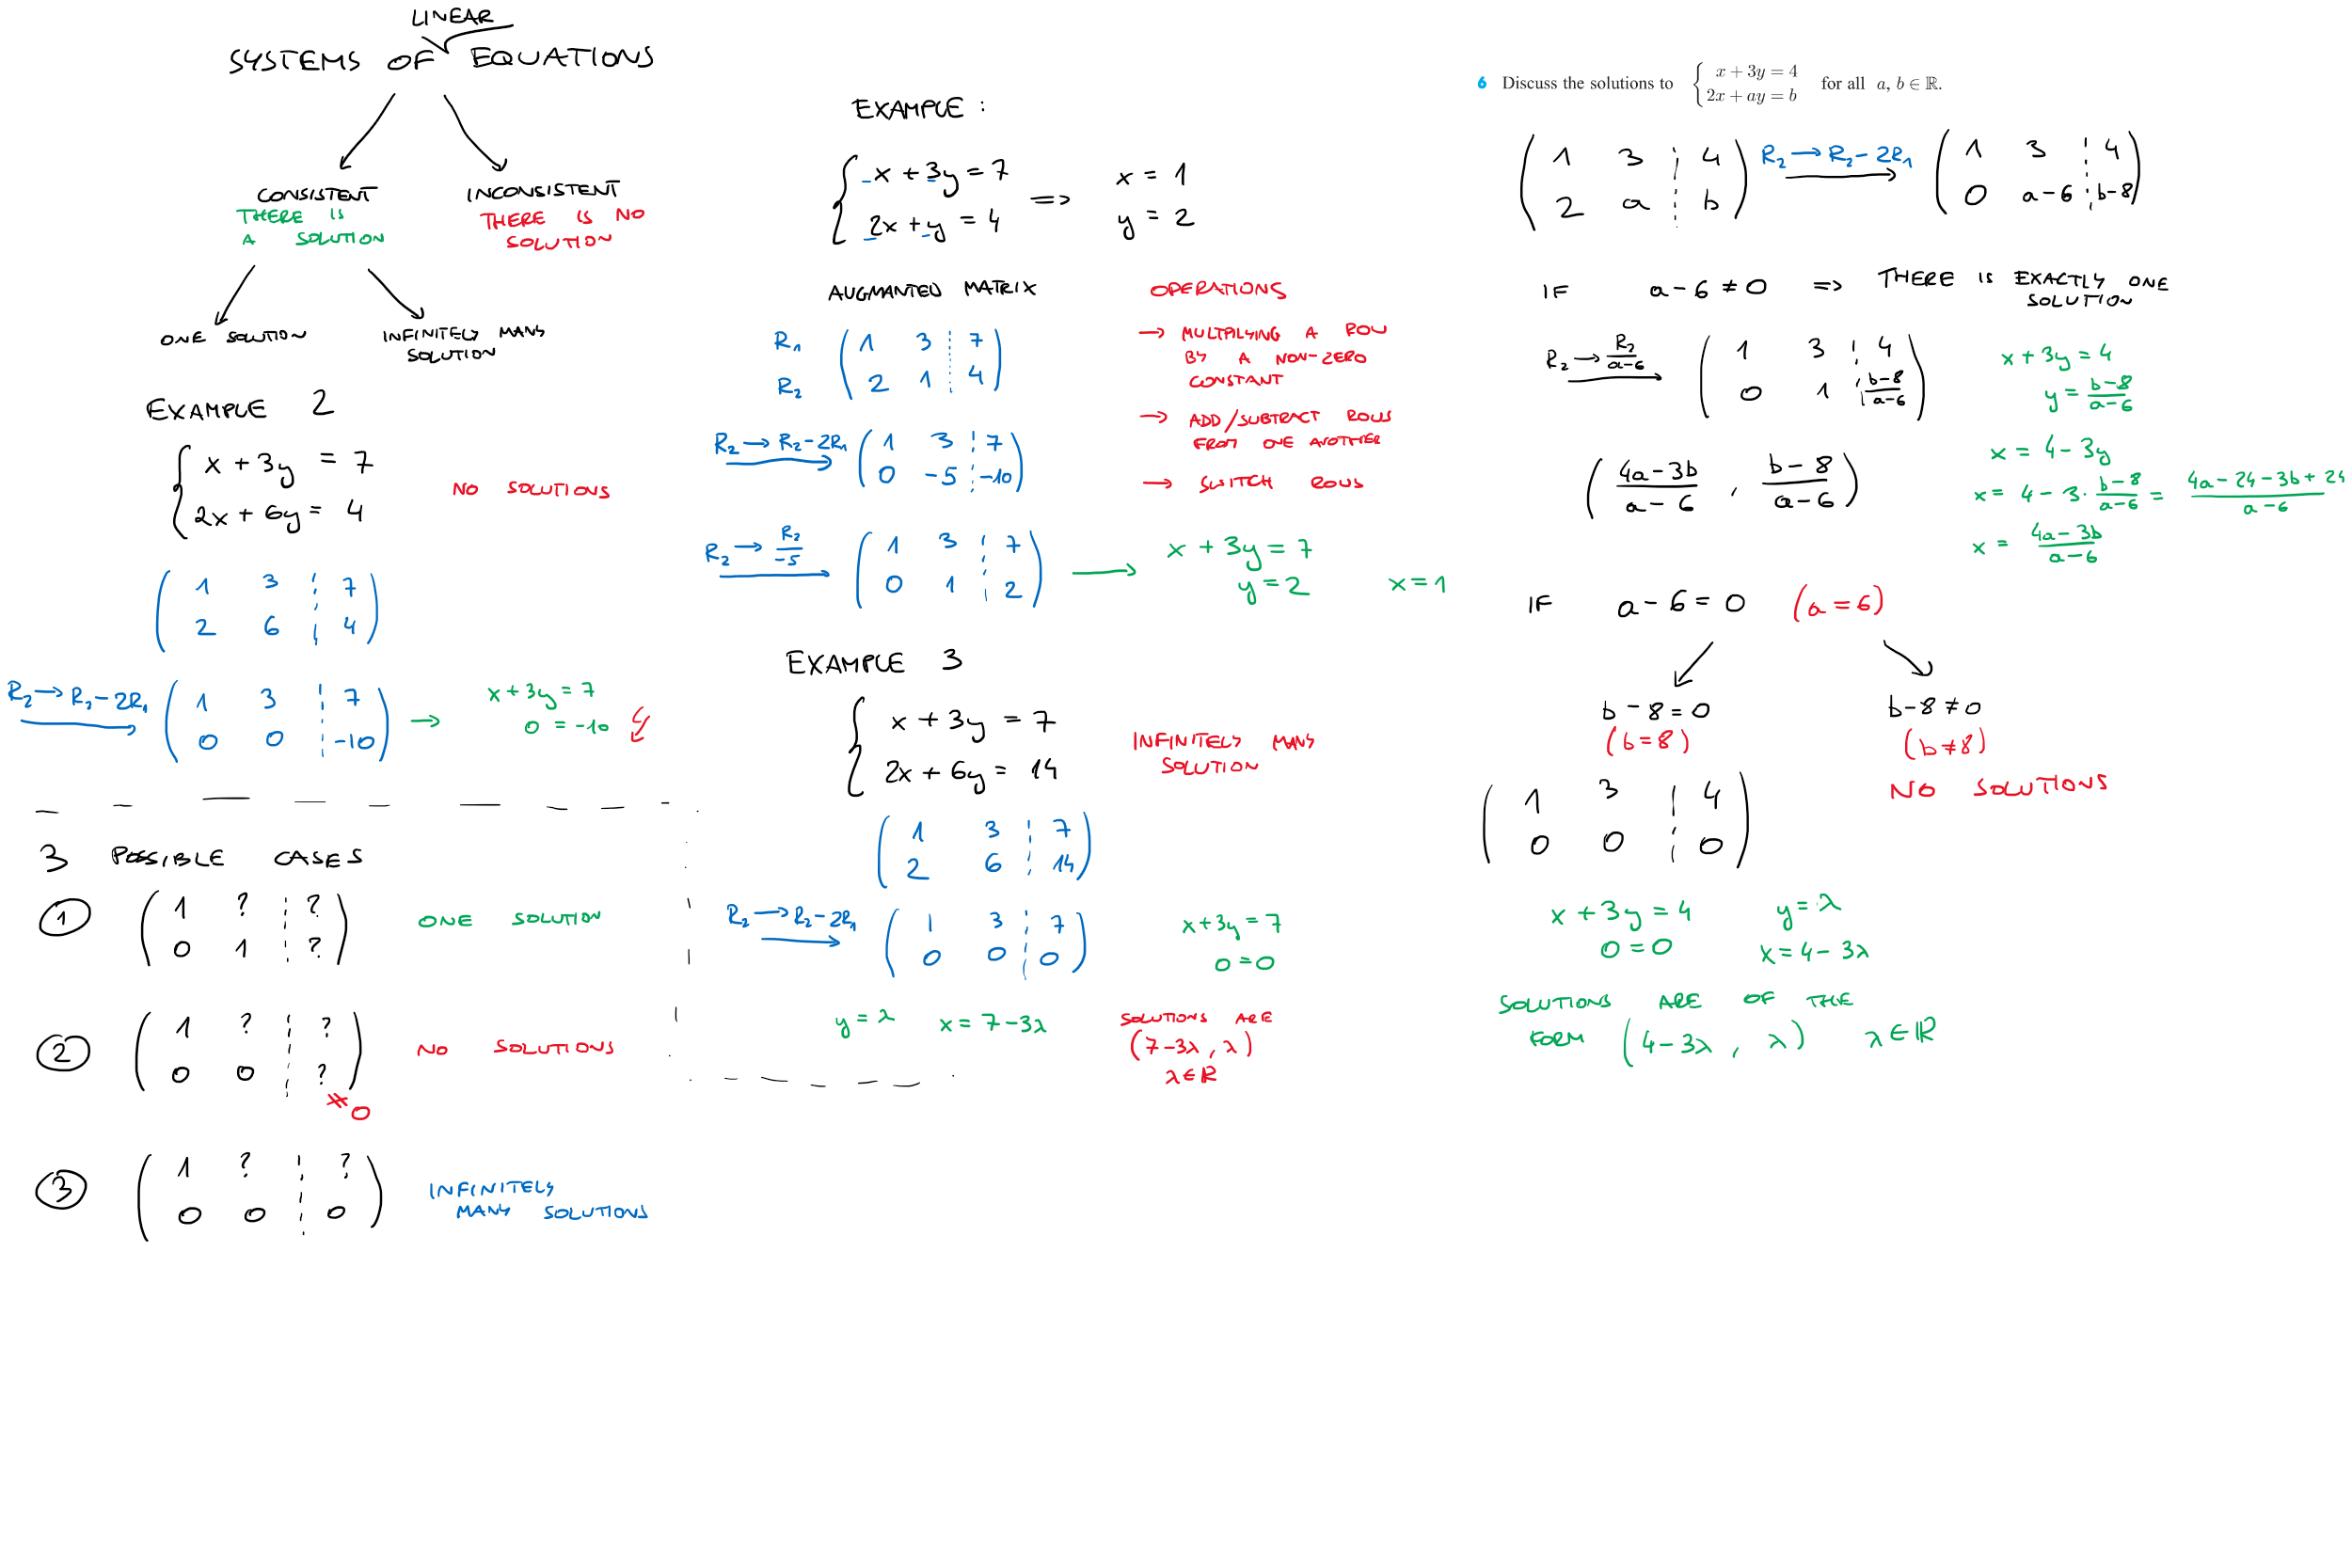 LINEAR
SYSTEMS OF EQUATIONS
CONSISTENT
THERE IS
A SOLUTION
INCONSISTENT
THERE IS NO
SOLUTION
ONE SOLUTION
INFINITELY MANY
SOLUTION
EXAMPLE 2
x + 3y = 7
2x + 6y = 4
NO SOLUTIONS
1 3 7
2 6 4
R₂ → R₂ - 2R₁
1 3 7
0 0 -10
→
x + 3y = 7
0 = -10
3 POSSIBLE CASES
1
1 ? ?
0 1 ?
ONE SOLUTION
2
1 ? ?
0 0 ?
≠ 0
NO SOLUTIONS
3
1 ? ?
0 0 0
INFINITELY
MANY SOLUTIONS
EXAMPLE :
x + 3y = 7
2x + y = 4
=>
x = 1
y = 2
AUGMANTED MATRIX
R₁ 1 3 7
R₂ 2 1 4
R₂ → R₂ - 2R₁
1 3 7
0 -5 -10
R₂ → R₂/-5
1 3 7
0 1 2
→
x + 3y = 7
y = 2 x = 1
OPERATIONS
→ MULTPILYING A ROW
BY A NON-ZERO
CONSTANT
→ ADD/SUBTRACT ROWS
FROM ONE ANOTHER
→ SWITCH ROWS
EXAMPLE 3
x + 3y = 7
2x + 6y = 14
INFINITELY MANY
SOLUTION
1 3 7
2 6 14
R₂ → R₂ - 2R₁
1 3 7
0 0 0
x + 3y = 7
0 = 0
y = λ x = 7 - 3λ
SOLUTIONS ARE
(7 - 3λ, λ)
λ ∈ ℝ
6 Discuss the solutions to { x + 3y = 4
2x + ay = b for all a, b ∈ ℝ.
1 3 4
2 a b
R₂ → R₂ - 2R₁
1 3 4
0 a-6 b-8
IF a - 6 ≠ 0 => THERE IS EXACTLY ONE
SOLUTION
R₂ → R₂/a-6
1 3 4
0 1 b-8/a-6
x + 3y = 4
y = b-8/a-6
(4a-3b/a-6 , b-8/a-6)
x = 4 - 3y
x = 4 - 3 · b-8/a-6 = 4a - 24 - 3b + 24/a-6
x = 4a - 3b/a-6
IF a - 6 = 0 (a = 6)
b - 8 = 0
(b = 8)
b - 8 ≠ 0
(b ≠ 8)
NO SOLUTIONS
1 3 4
0 0 0
x + 3y = 4
0 = 0
y = λ
x = 4 - 3λ
SOLUTIONS ARE OF THE
FORM (4 - 3λ, λ) λ ∈ ℝ